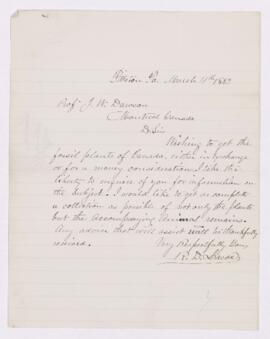 Pittston Pa. March 11th 1889
Prof J. W. Dawson
Montreal Canada
D. Sir
Wishing to get the
fossil plants of Canada, either in exchange
or for a money consideration I take the
liberty to inquire of you for information on
the subject. I would like to get as complete
a collection as posible of not only the plants
but the accompanying animal remains.
Any advice that will assist will be thankfully
received.
Very Respectfully Yours
R. D. Lacoe